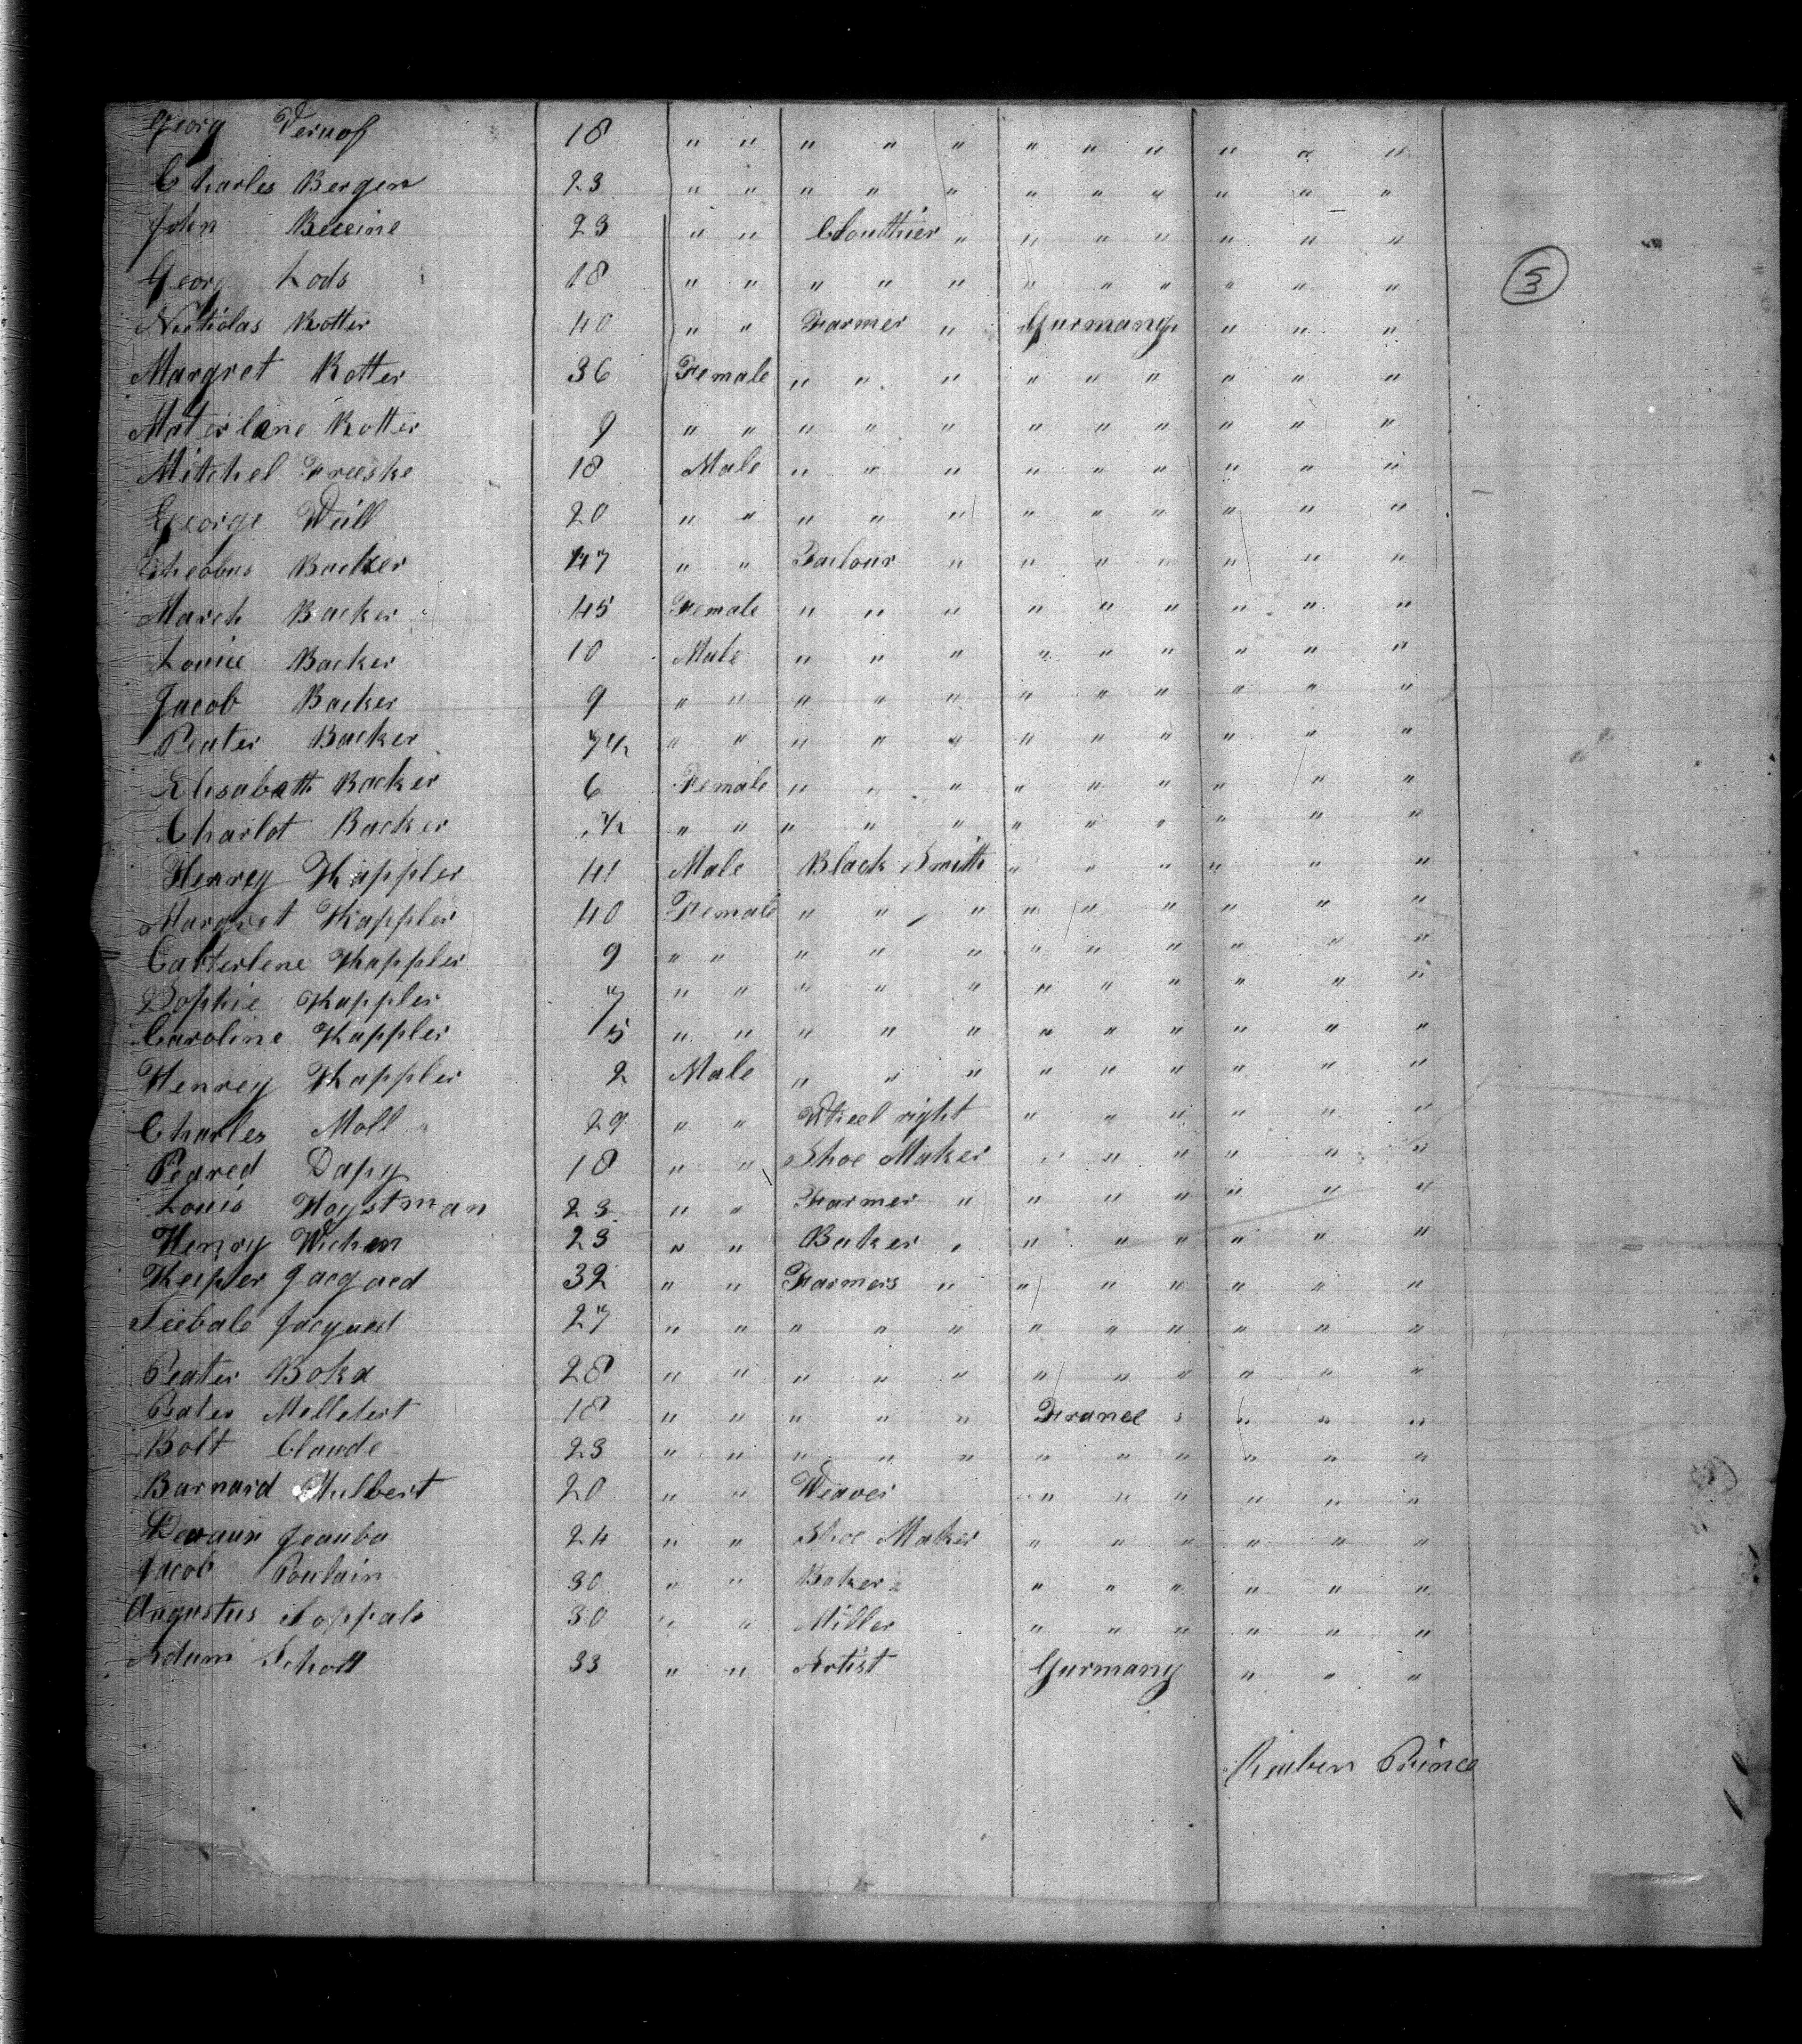 Georg Vernof 18 " " " " " " " " " " "
Charles Bergen 23 " " " " " " " " " " "
John 23 " " Clouthier " " " " " " "
Georg Lods 18 " " " " " " " " " " "
Nicholas Rotter 40 " " Farmer " Gurmany " " "
Margret Rotter 36 Female " " " " " " " " "
Materlane Rotter 9 " " " " " " " " " " "
Mitchel 18 Male " " " " " " " " "
George Will 20 " " " " " " " " " " "
Backer 47 " " " " " " " " "
March Backer 45 Female " " " " " " " " "
Louice Backer 10 Male " " " " " " " " "
Jacob Backer 9 " " " " " " " " " " "
Peater Backer 7½ " " " " " " " " " " "
Elisabeth Backer 6 Female " " " " " " " " "
Charlot Backer ½ " " " " " " " " " " "
Henrey Kappler 41 Male Black Smith " " " " " "
Margret Kappler 40 Female " " " " " " " " "
Catterlene Kappler 9 " " " " " " " " " " "
Sophie Kappler 7 " " " " " " " " " " "
Caroline Kappler 5 " " " " " " " " " " "
Henrey Kappler 2 Male " " " " " " " " "
Charles Moll 29 " " Wheel right " " " " " "
Peared Dapy 18 " " Shoe Maker " " " " " "
Louis Hoystman 23 " " Farmer " " " " " " "
Henry Wichen 23 " " Baker " " " " " " "
Keiper Jacqued 32 " " Farmers " " " " " " "
Jacqued 27 " " " " " " " " " " "
Peater Boka 28 " " " " " " " " " " "
Peater Melletert 18 " " " " " France " " " "
Bolt Claude 23 " " " " " " " " " " "
Barnard 20 " " Weaver " " " " " "
Jeauba 24 " " Shoe Maker " " " " " "
Jacob Poulain 30 " " Baker " " " " " "
Augustus 30 " " Miller " " " " " "
Adam Schott 33 " " Artist Gurmany " " "
Reuben Prince